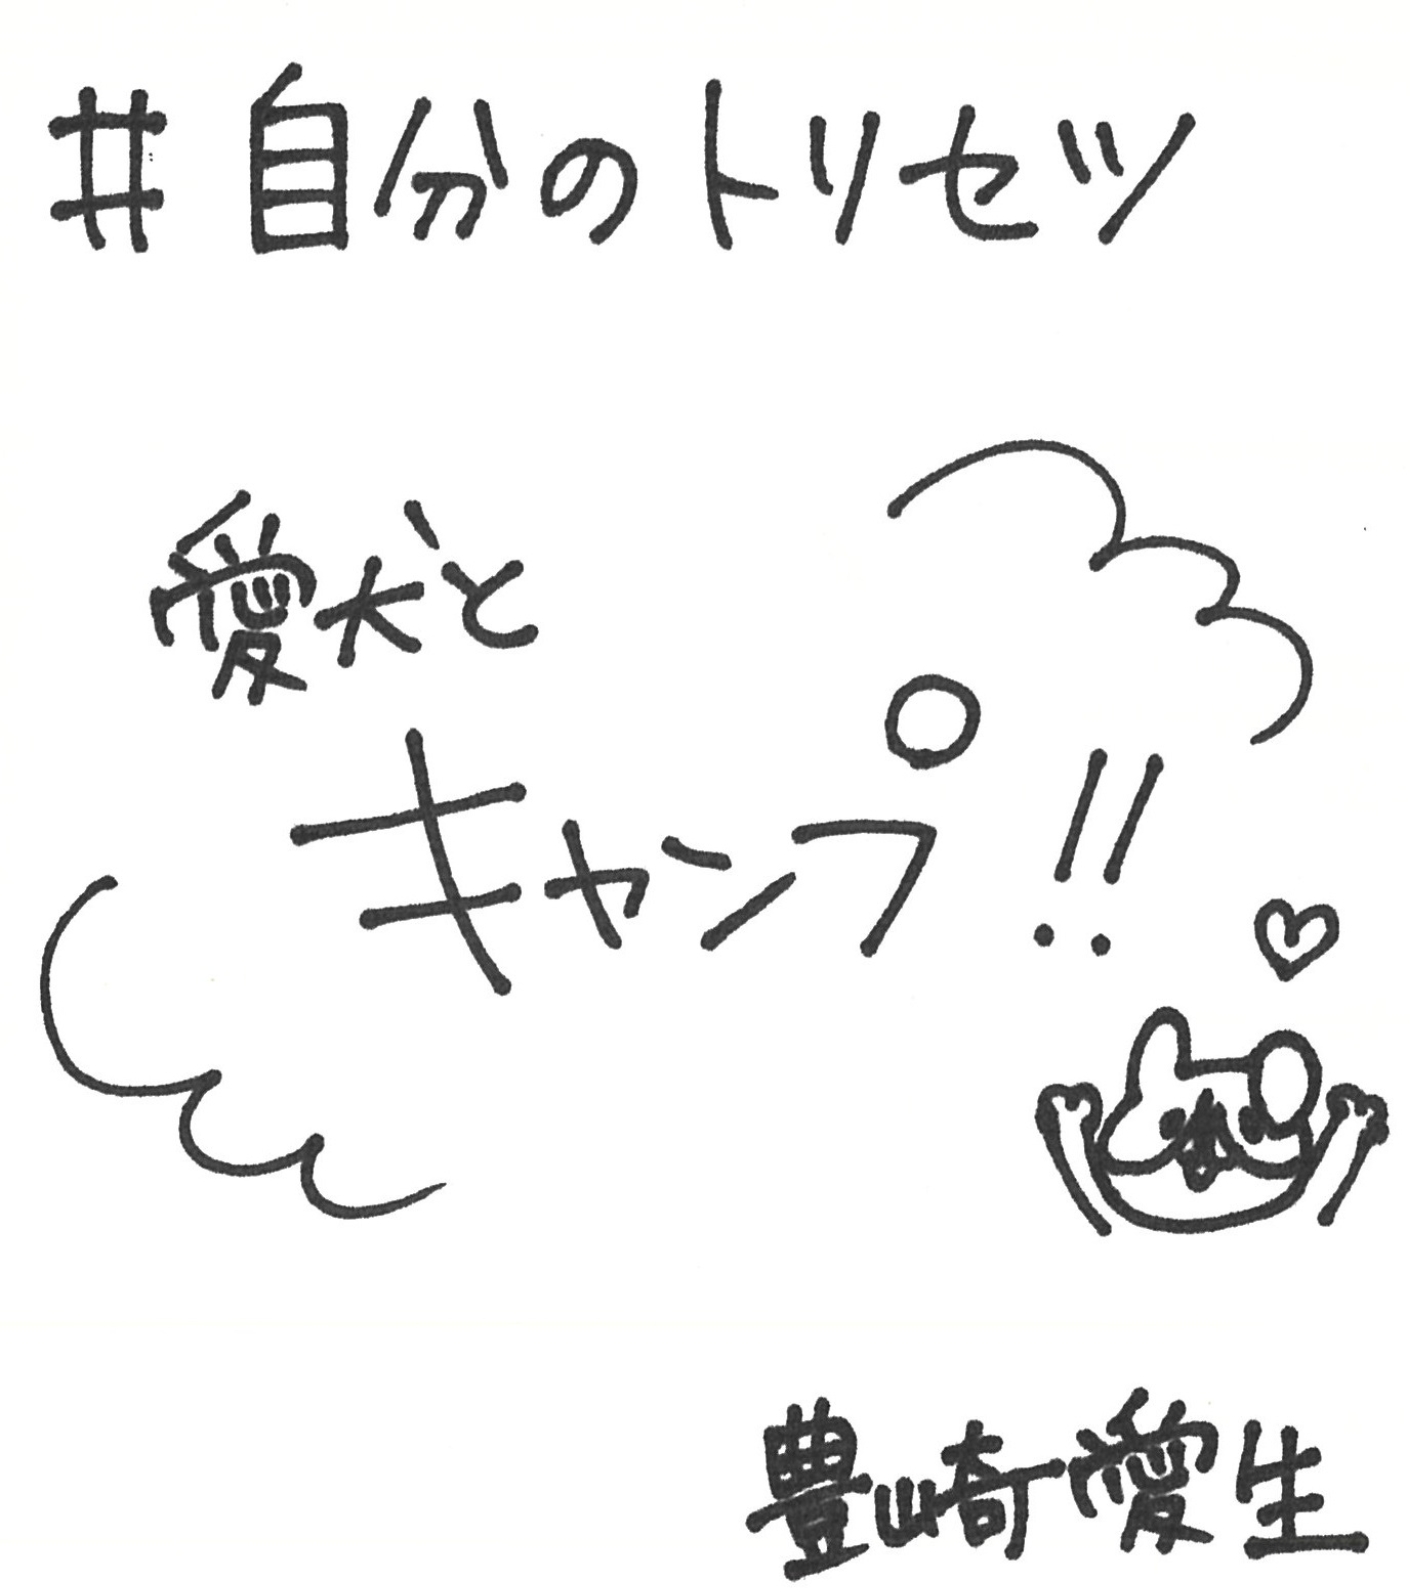 #自分のトリセツ
愛犬と
キャンプ!!
豊崎愛生